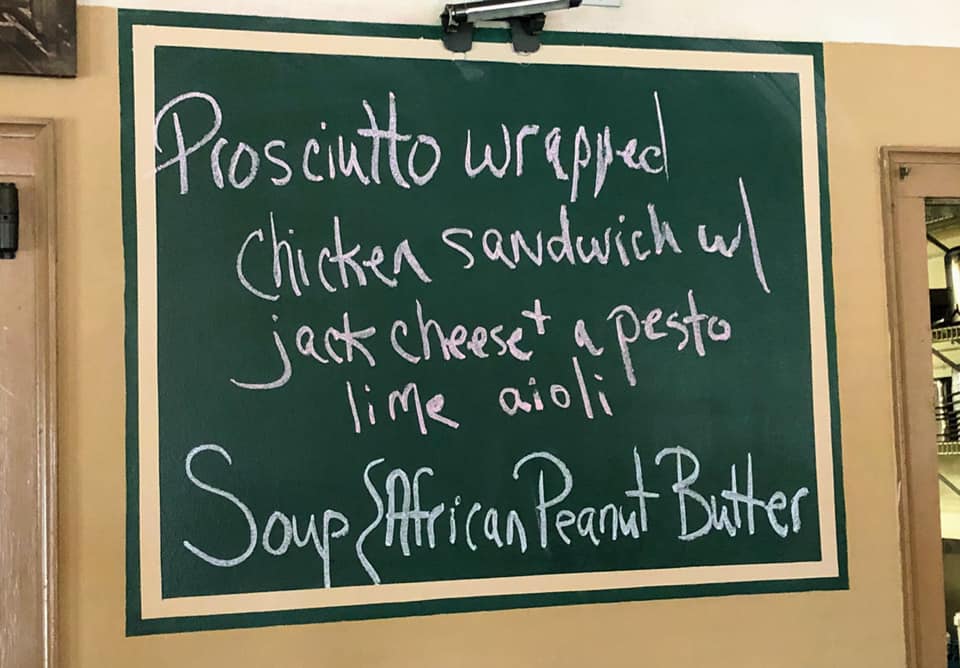 Prosciutto wrapped
chicken sandwich w/
jack cheese + a pesto
lime aioli
Soup { African Peanut Butter